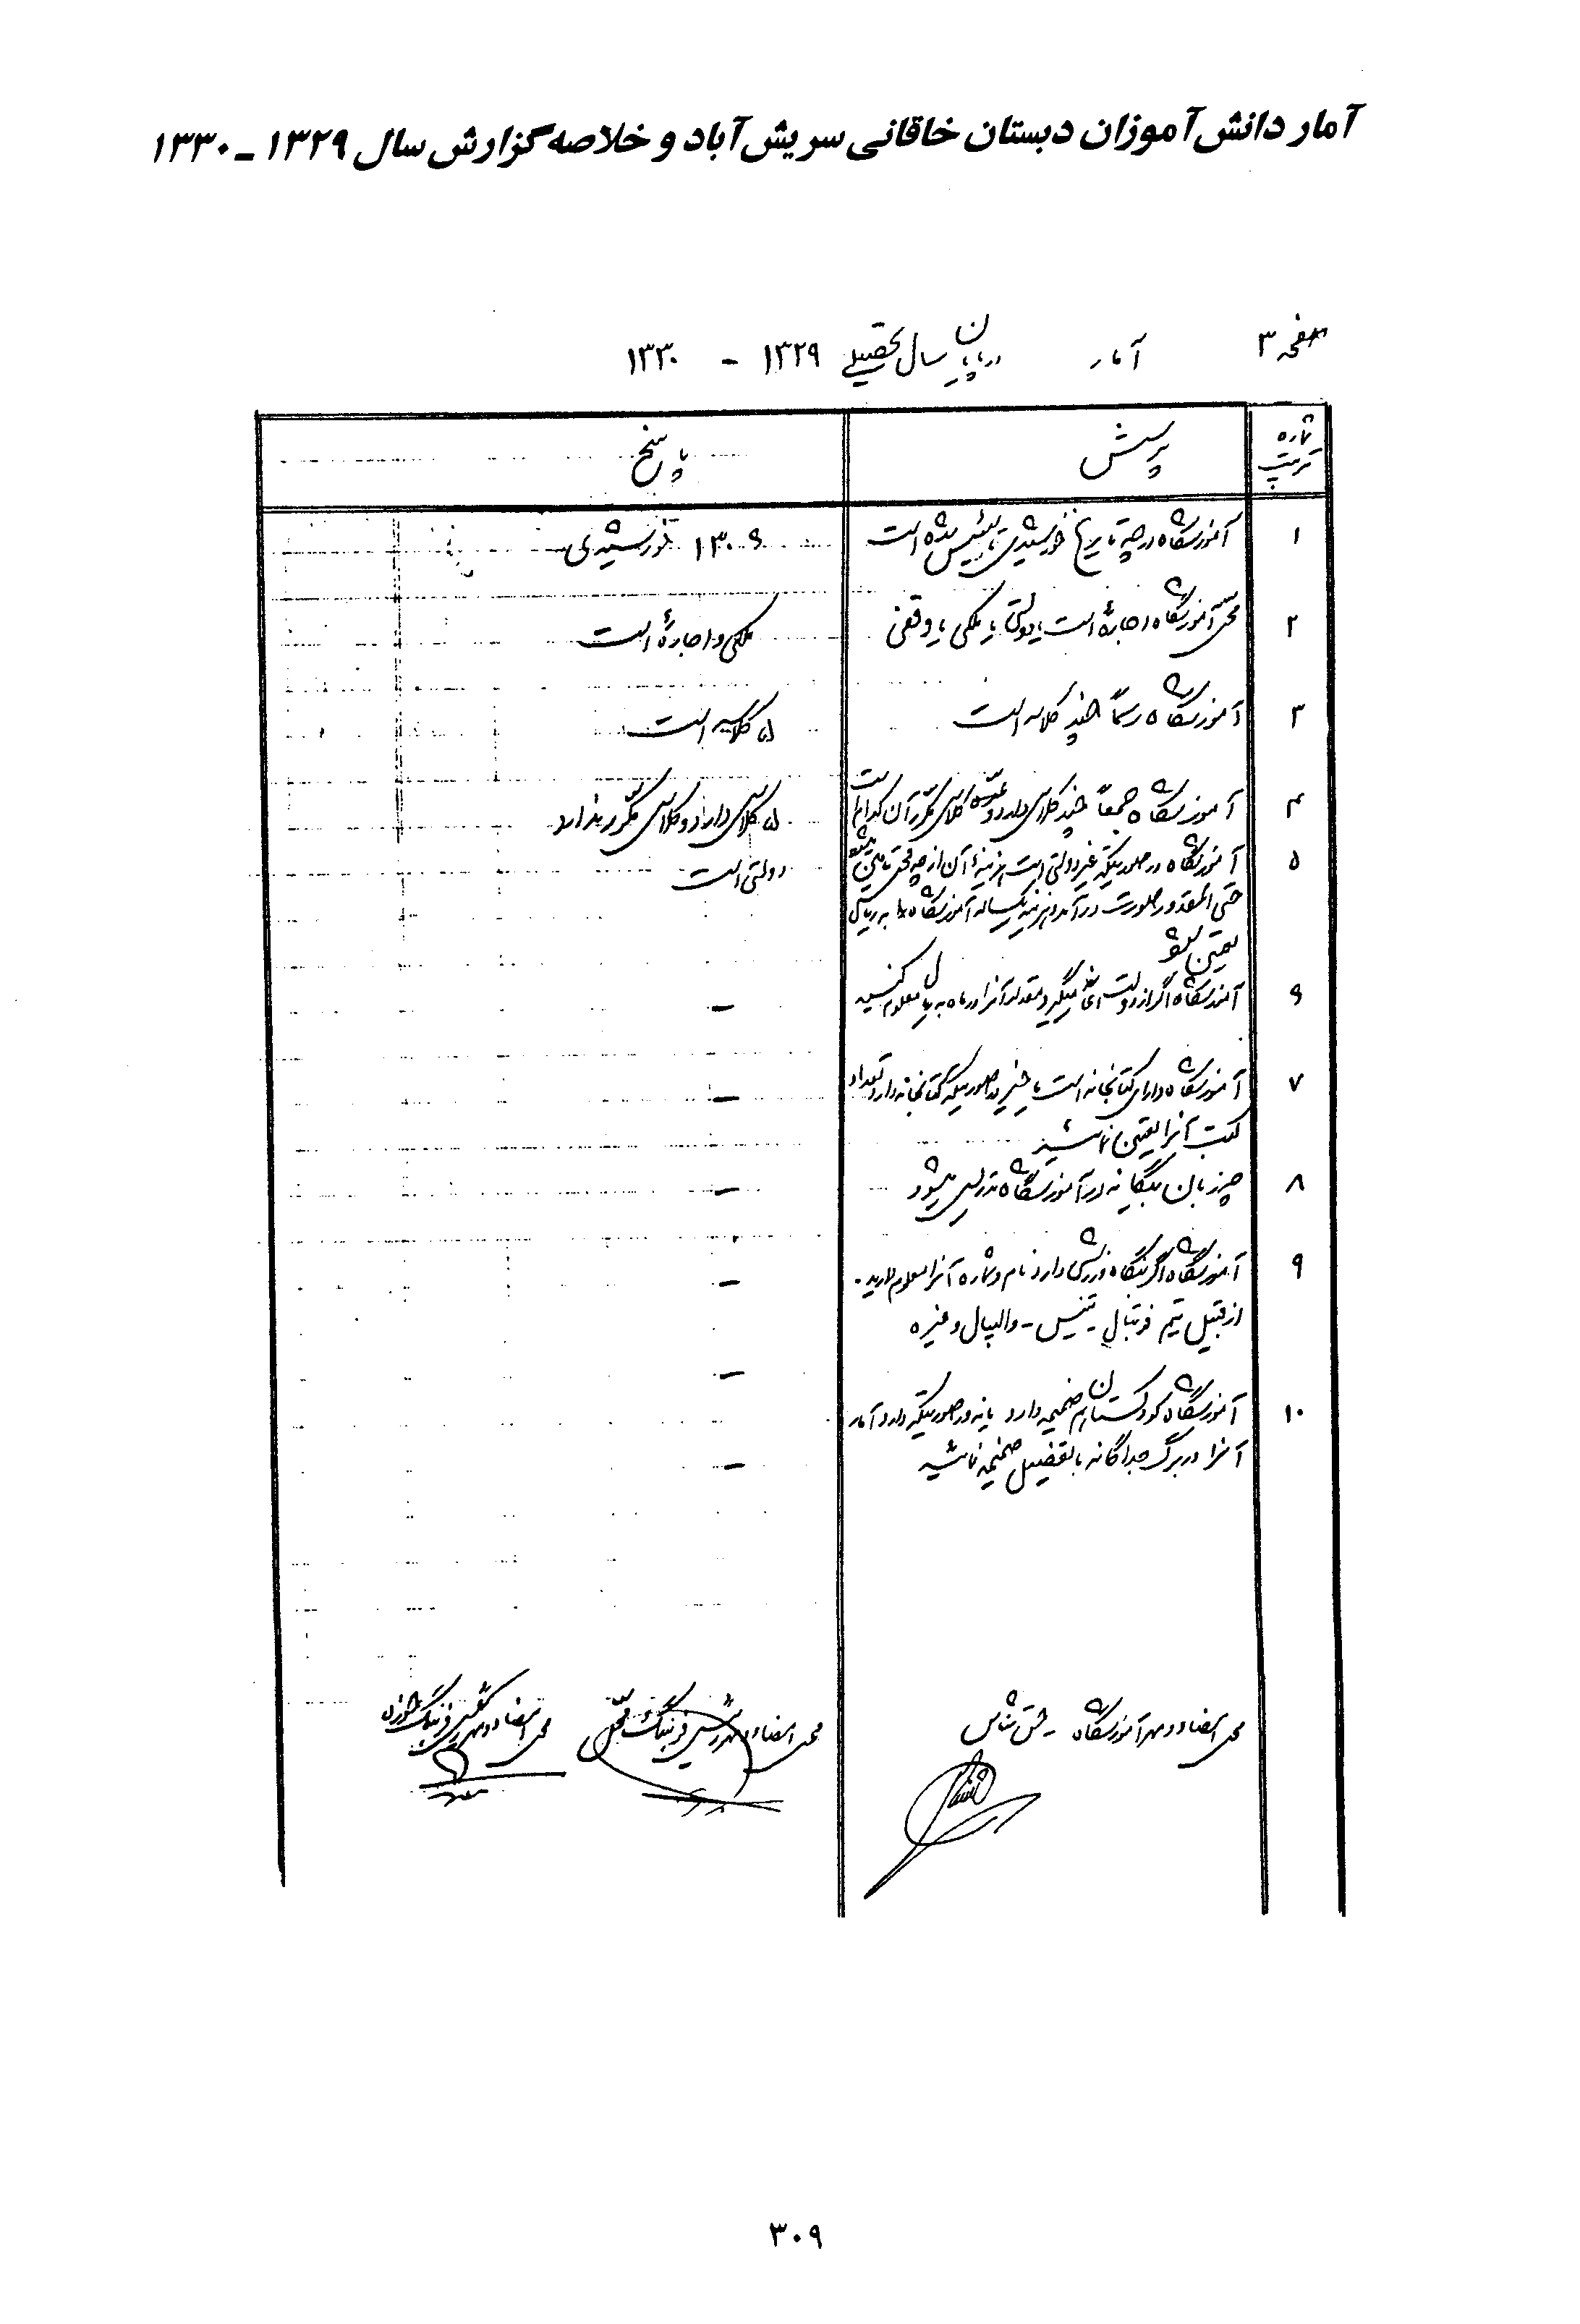 آمار دانش‌آموزان دبستان خاقانی سریش‌آباد و خلاصه گزارش سال ۱۳۲۹ ـ ۱۳۳۰
صفحه ۳ آمار در پایان سال تحصیلی ۱۳۲۹ - ۱۳۳۰
شماره ترتیب پرسش پاسخ
۱ آموزشگاه در چه تاریخ خورشیدی تأسیس شده است ۱۳۰۶ خورشیدی
۲ محل آموزشگاه اجاره است یا دولتی یا ملکی یا وقفی ملکی و اجاره است
۳ آموزشگاه رسماً چند کلاسه است ۵ کلاسه است
۴ آموزشگاه جمعاً چند کلاس دارد و کلاس مکرر آن کدام است ۵ کلاس دارد و کلاس مکرر ندارد
۵ آموزشگاه در صورتیکه غیر دولتی است هزینه آن از چه محل تأمین میشود دولتی است
حتی المقدور صورت درآمد و هزینه یکساله آموزشگاه را به ریال
تعیین کنید
۶ آموزشگاه اگر از دولت اعانه میگیرد مقدار آنرا در ماه به ریال معلوم کنید -
۷ آموزشگاه دارای کتابخانه است یا خیر در صورتیکه کتابخانه دارد تعداد -
کتب آنرا تعیین نمائید
۸ چه زبان بیگانه در آموزشگاه تدریس میشود -
۹ آموزشگاه اگر باشگاه ورزشی دارد نام و شماره آنرا معلوم دارید. -
از قبیل تیم فوتبال - تنیس - والیبال و غیره
-
۱۰ آموزشگاه کودکستان هم ضمیمه دارد یا نه در صورتیکه دارد آمار
آنرا در برگ جداگانه بالتفصیل ضمیمه نمائید -
محل امضاء و مهر آموزشگاه حق شناس محل امضاء و مهر رئیس فرهنگ محل محل امضاء و مهر رئیس فرهنگ
۳۰۹